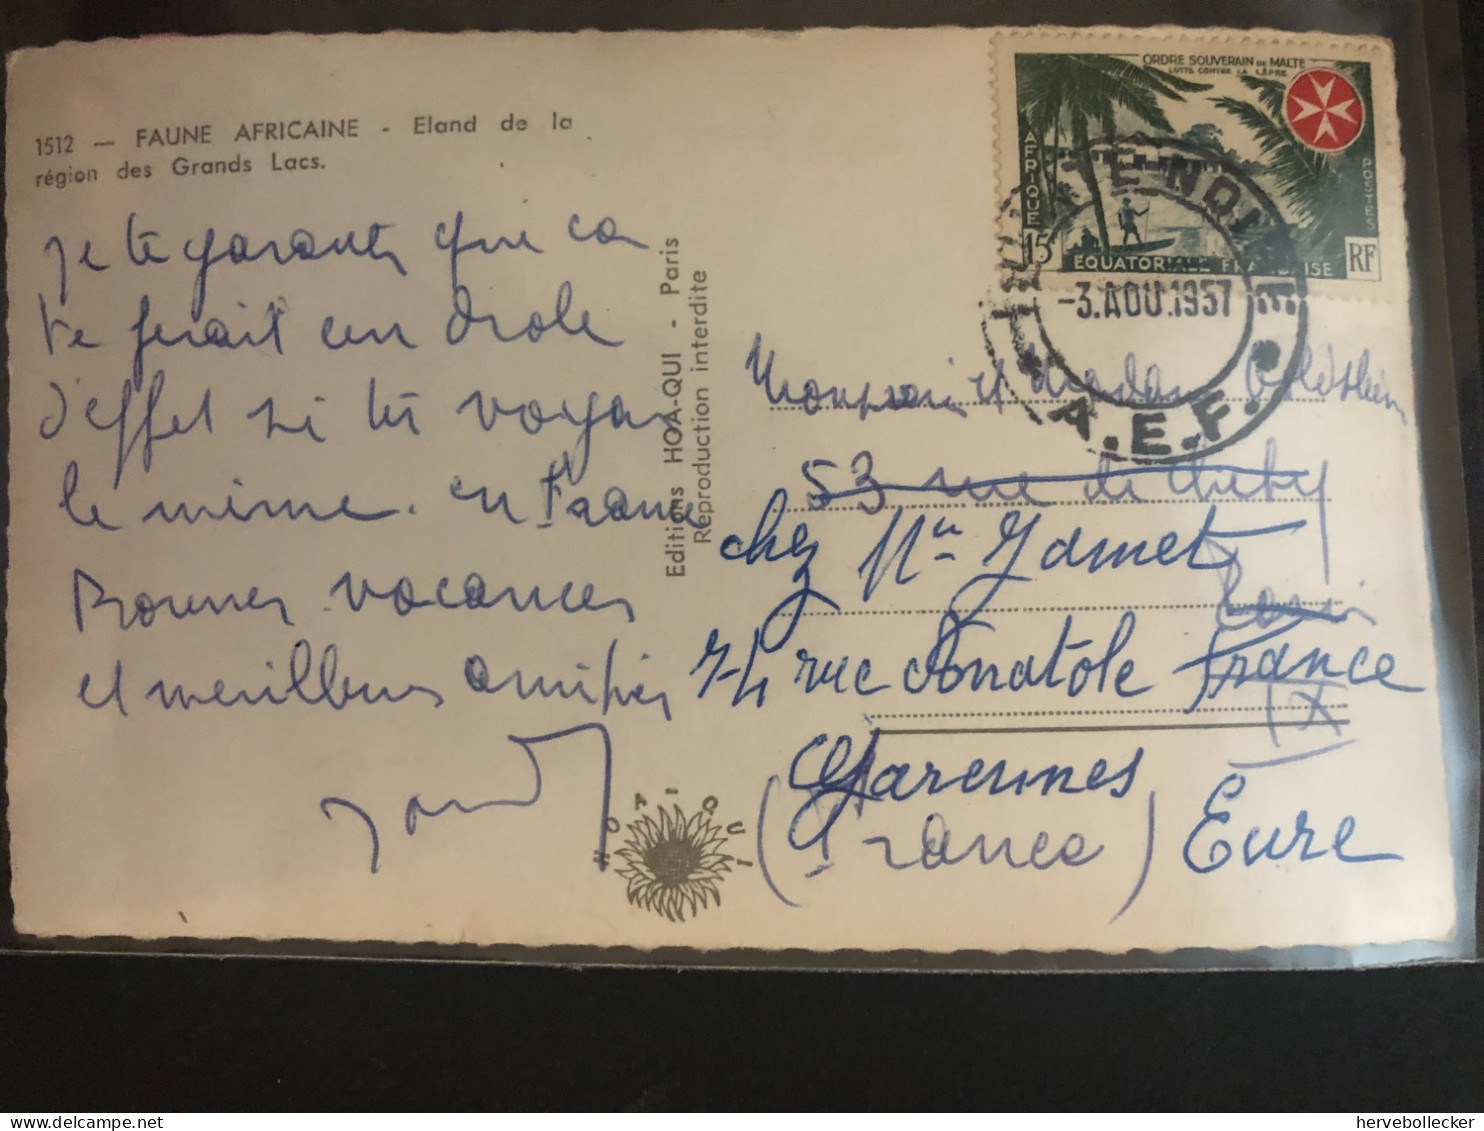 1512 — FAUNE AFRICAINE - Eland de la
région des Grands Lacs.
je te garantis que ca
te ferait un drole
d'effet si tu voyais
le même. en France
Bonnes vacances
et meilleures amitiés
Editions HOA-QUI - Paris
Reproduction interdite
HOA-QUI
ORDRE SOUVERAIN DE MALTE
LUTTE CONTRE LA LÈPRE
AFRIQUE
15F
EQUATORIALE FRANÇAISE
POSTES
RF
POINTE-NOIRE
-3.AOU.1957
A.E.F.
Monsieur et Madame
53 rue de
chez Mr Jamet
Paris
74 rue Anatole France
IX
Garennes
(France) Eure
hervebollecker